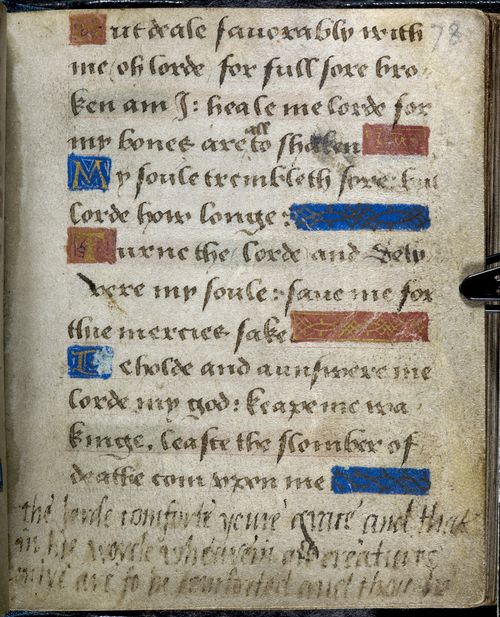 78
But deale favorably with
me oh lorde for full sore bro
ken am I: heale me lorde for
all
my bones are to shaken
My soule trembleth sore: but
lorde how longe:
Turne the lorde and dely
vere my soule: save me for
thie mercies sake
Beholde and aunswere me
lorde my god: keape me wa
kinge, leaste the slomber of
deathe com vpon me
the lorde comforte youre grace and that
in his worde whearein all creatures
onlye are to be comforted and thoue